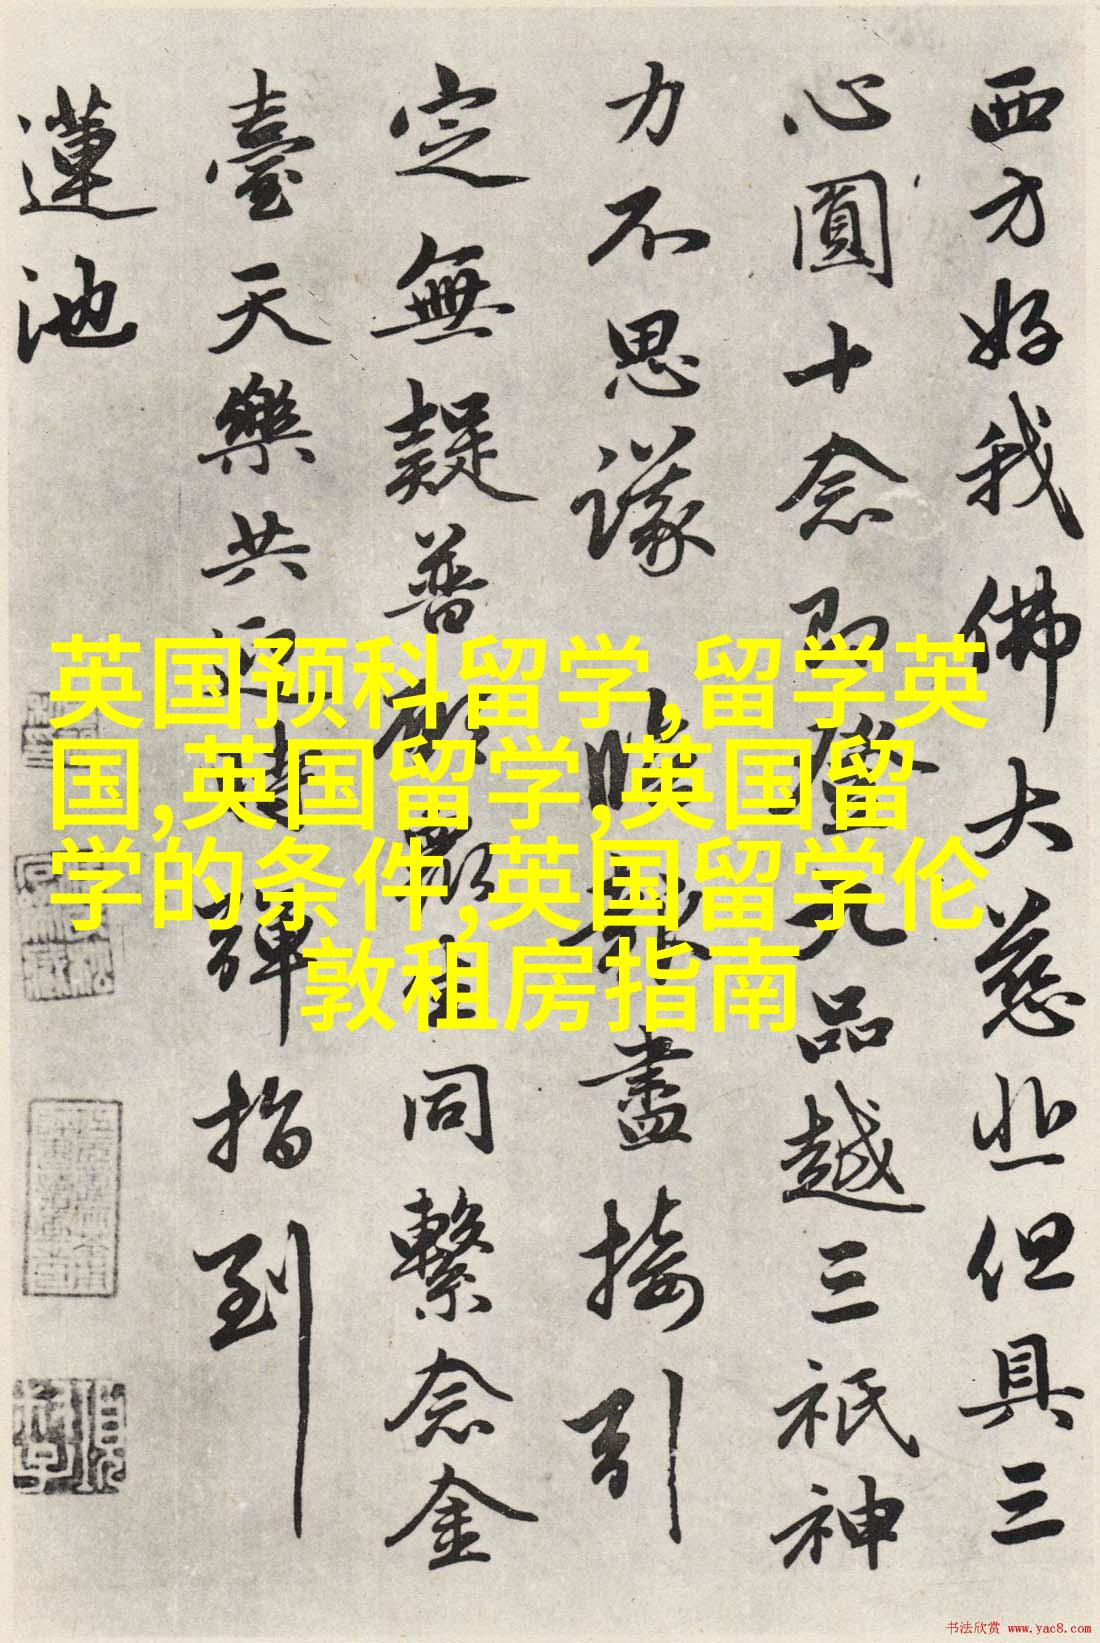 西方好我佛大慈悲但具三
心圓十念即登九品越三祇神
力不思議臨報盡接引
定無疑普願眾生同繫念金
臺天樂共迎時彈指到
蓮池
英国预科留学,留学英
国,英国留学,英国留
学的条件,英国留学伦
敦租房指南
书法欣赏 www.yac8.com